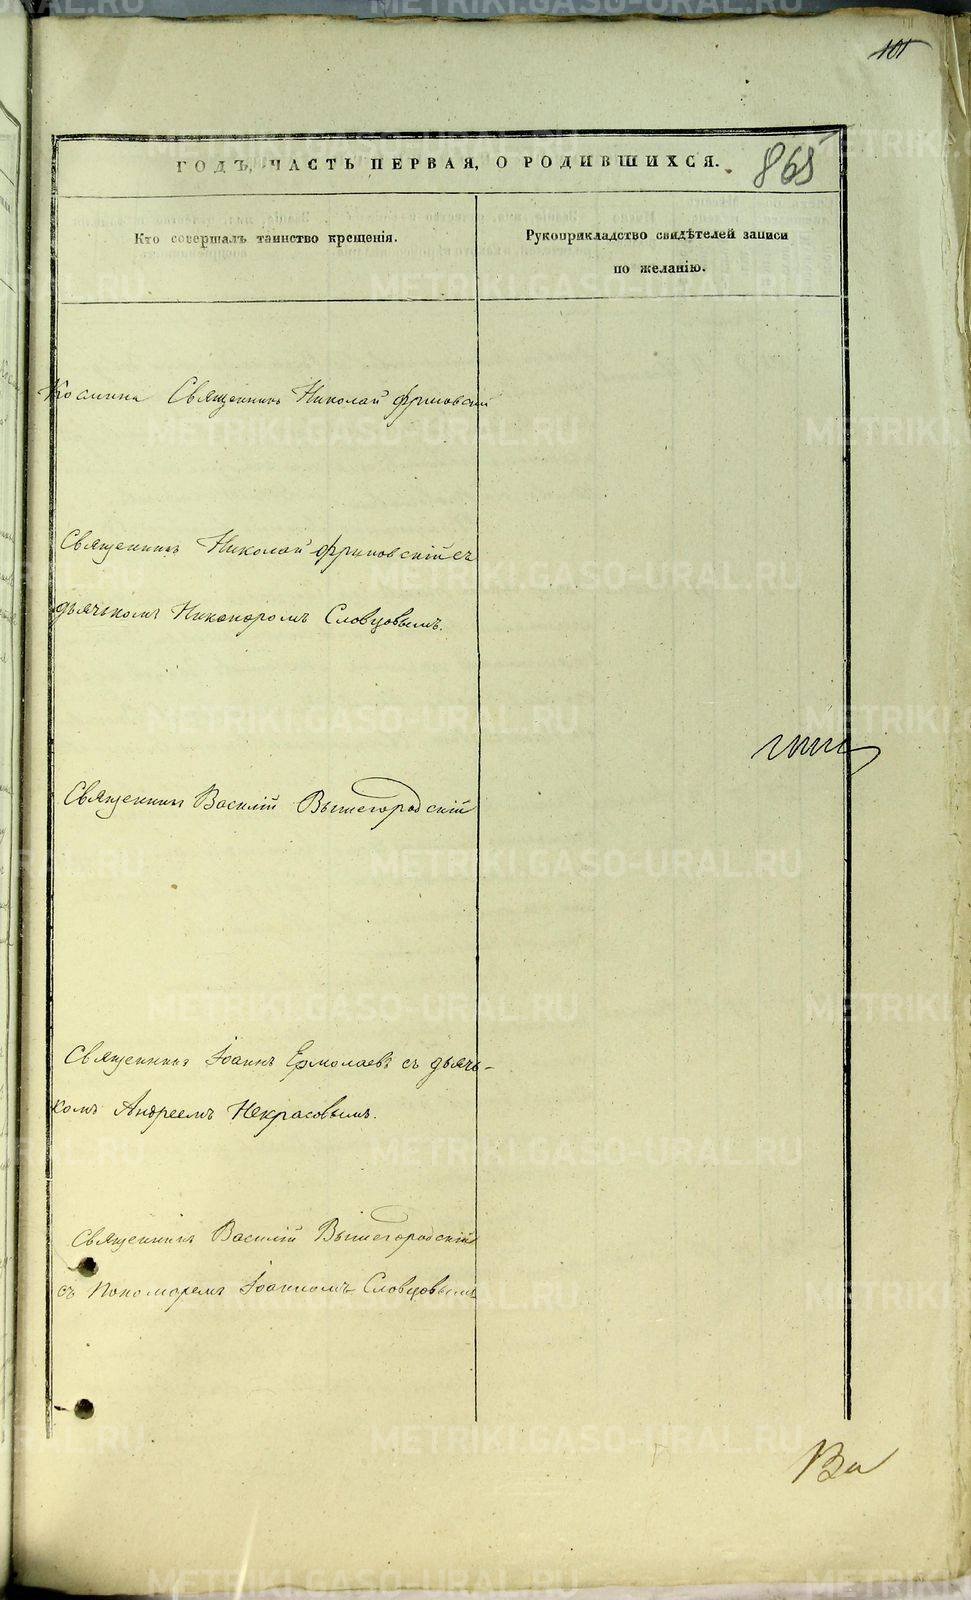 101
865
ГОДЪ, ЧАСТЬ ПЕРВАЯ, О РОДИВШИХСЯ.
Кто совершалъ таинство крещенія.
Рукоприкладство свидѣтелей записи
по желанію.
Священникъ Николай Фриновский
Священникъ Николай Фриновскій съ
дьячькомъ Никаноромъ Словцовымъ.
Священникъ Василій Вышегородскій
Священникъ Іоаннъ Ермолаевъ съ дьячь-
комъ Андреемъ Некрасовымъ.
Священникъ Василій Вышегородскій
съ Пономаремъ Іоанномъ Словцовымъ
METRIKI.GASO-URAL.RU